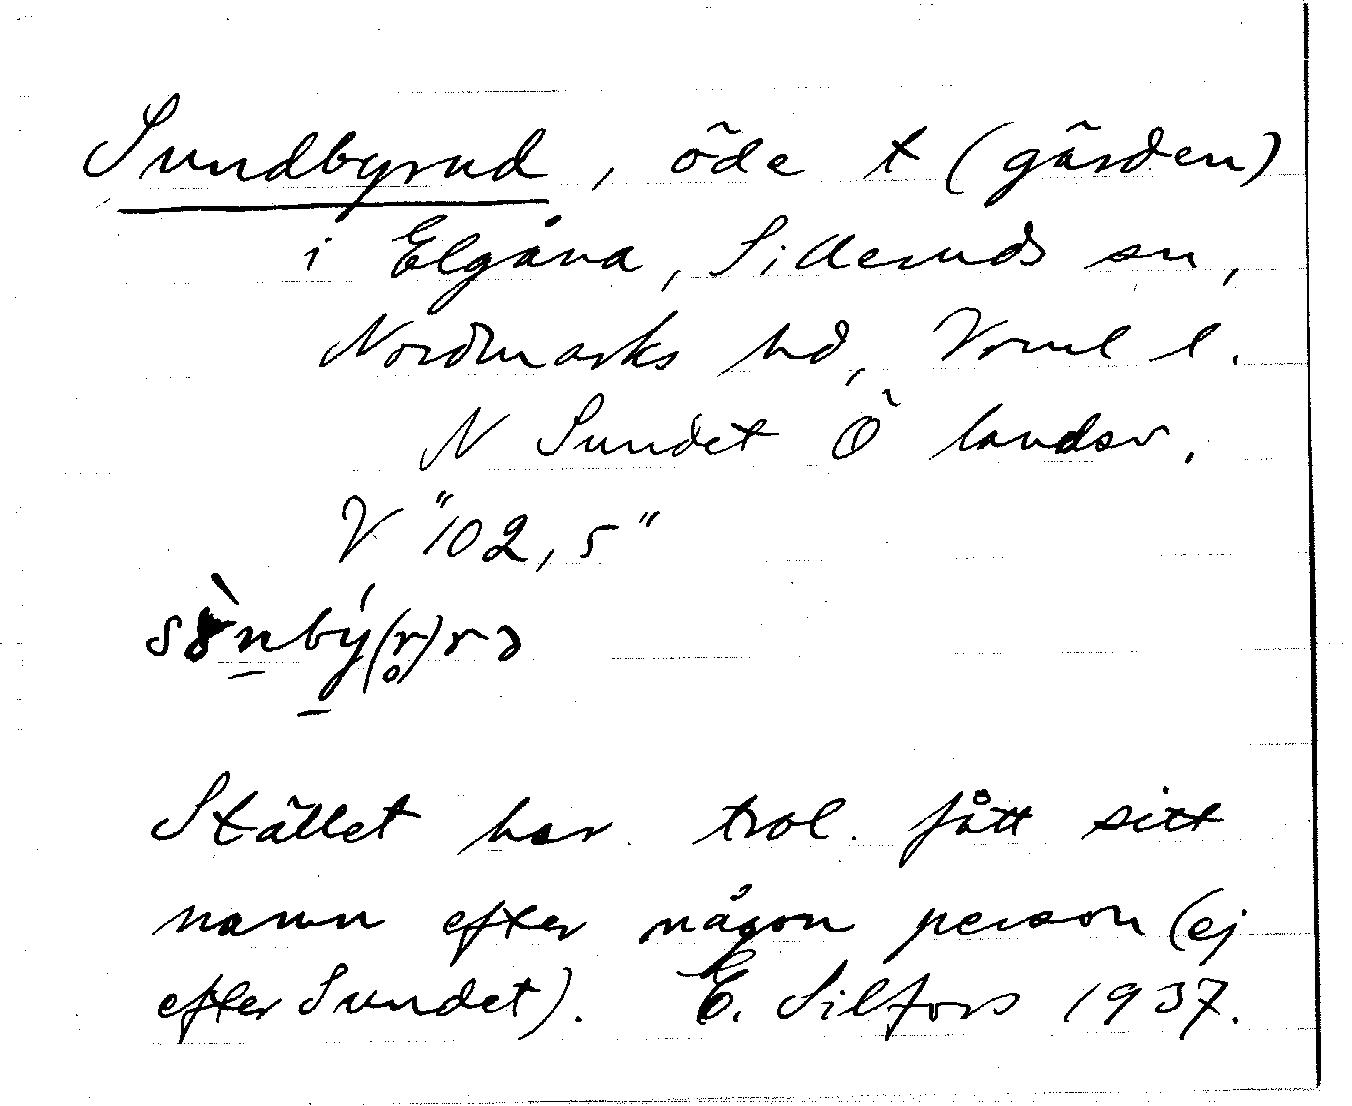 Sundbyrud, öde t (gården)
i Elgåna, Silleruds sn,
Nordmarks hd, Vrml l.
N Sundet Ö landsv.
V "102,5"
Stället har trol. fått sitt
namn efter någon person (ej
efter Sundet). E. Silfors 1937.